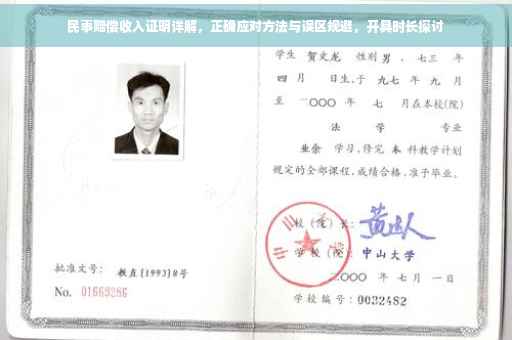 民事赔偿收入证明详解，正确应对方法与误区规避，开具时长探讨
学生 贺文龙 性别 男，七三 年
四 月 日生，于 九七 年 九 月
至 二〇〇〇 年 七 月在本校(院)
法 学 专业
业余 学习，修完 本 科教学计划
规定的全部课程，成绩合格，准予毕业。
校（院）长：
学校（院）：中山大学
二〇〇〇 年 七 月 一 日
学校编号：0032482
批准文号：教直[1993]8号
No. 01669286